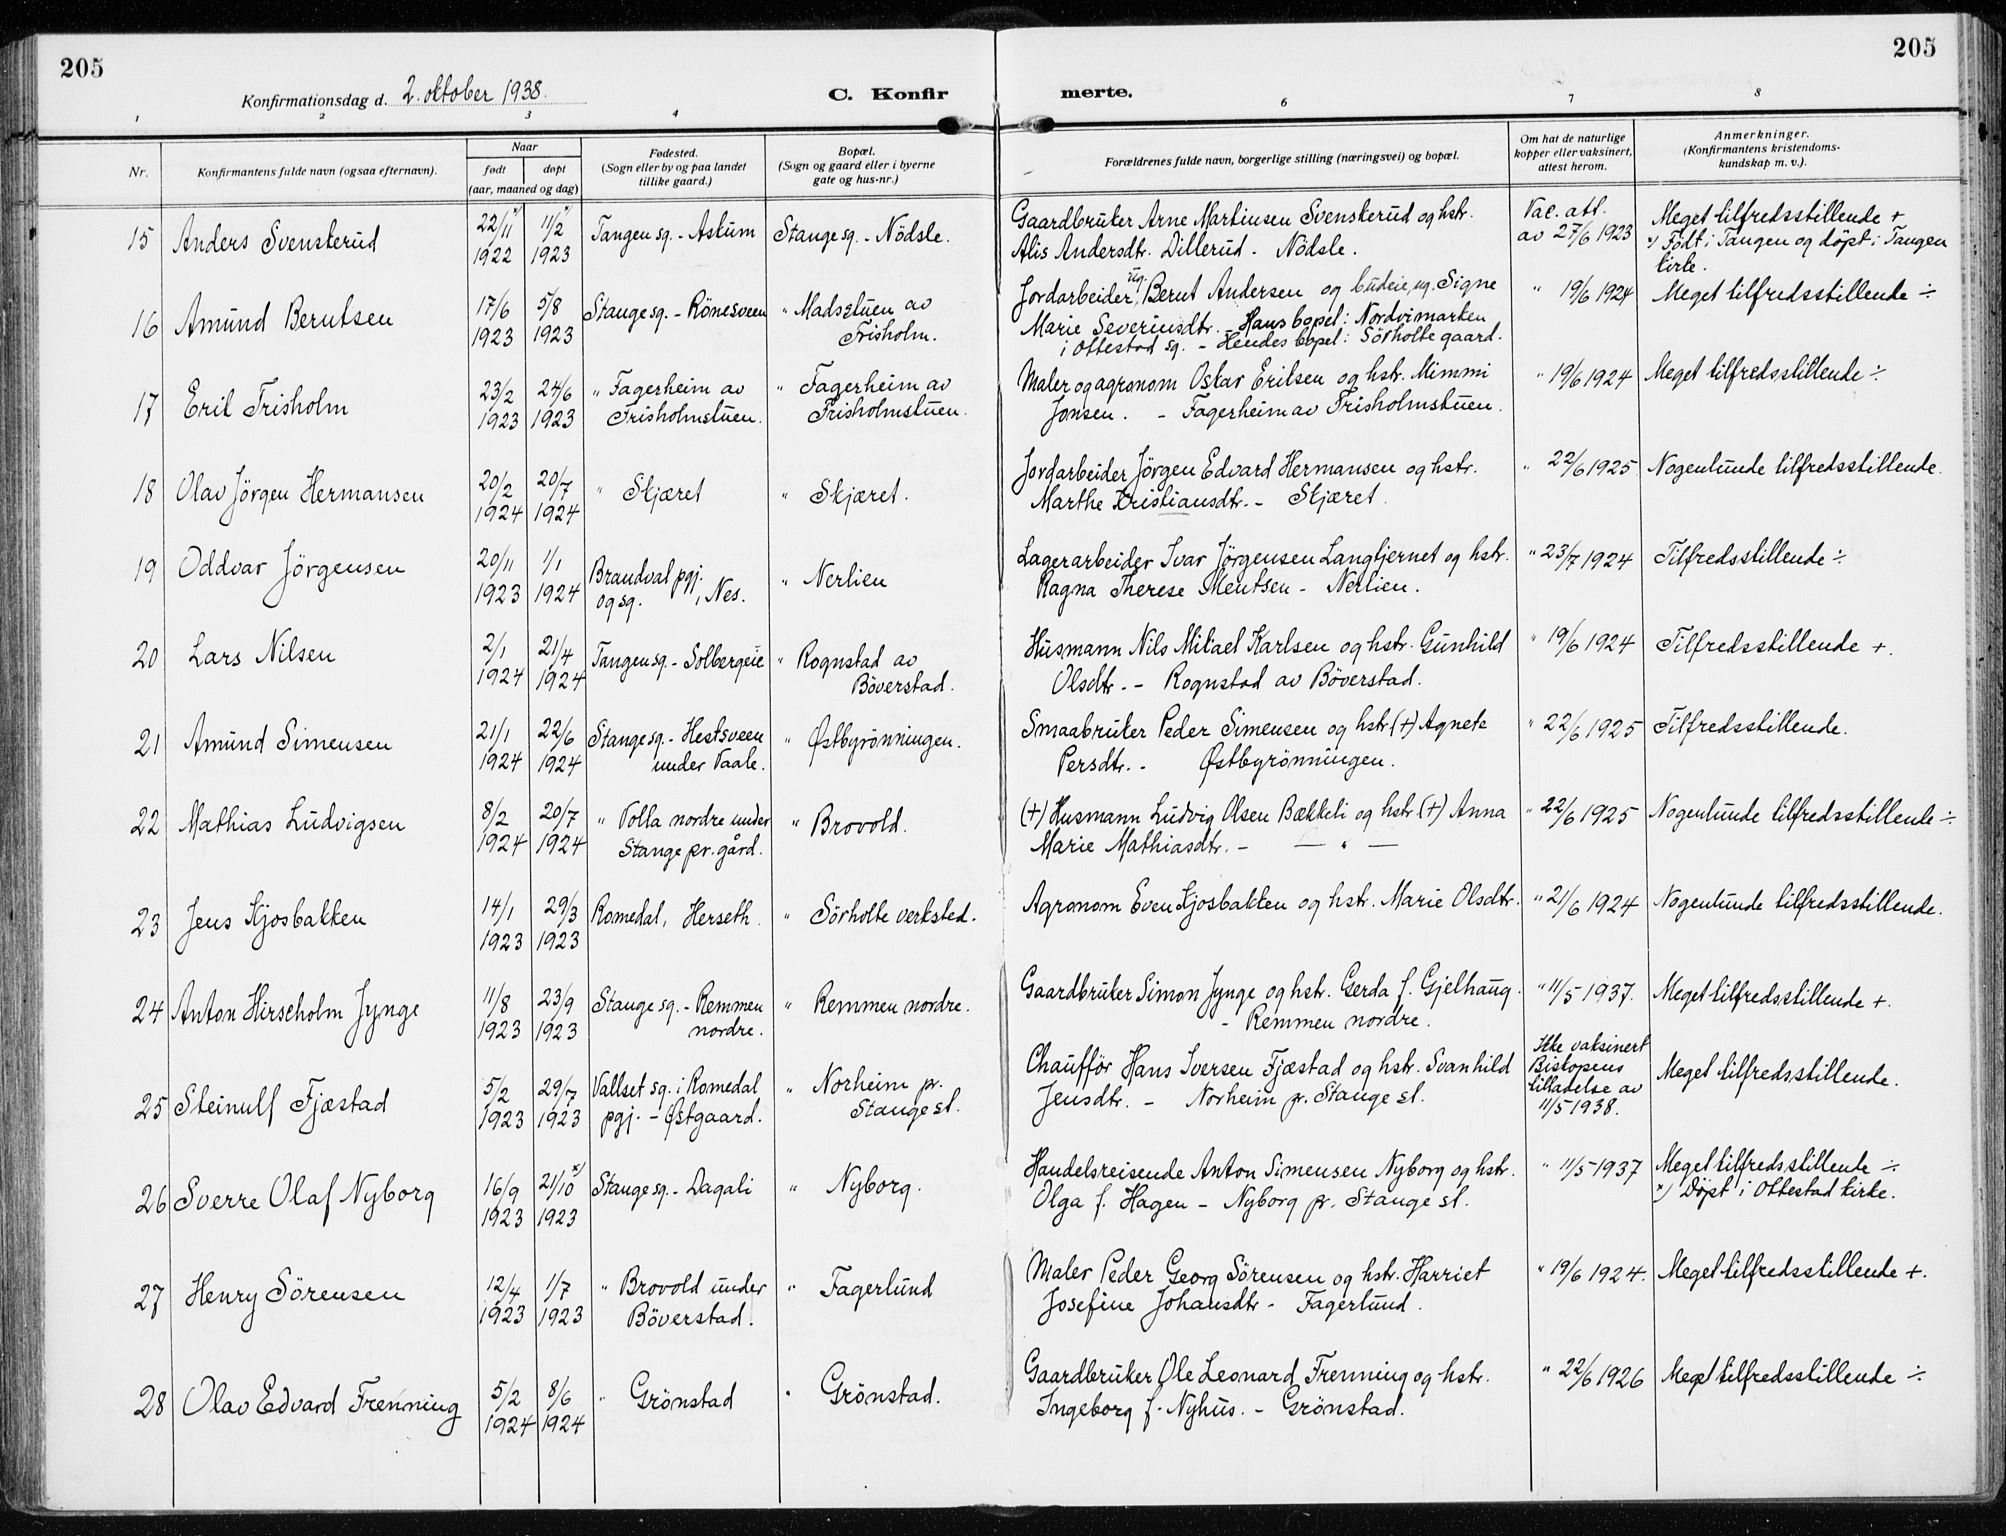 205
205
Konfirmationsdag d. 2. oktober 1938.
C. Konfir
merte.
1 2 3 4 5 6 7 8
Nr.
Konfirmantens fulde navn (ogsaa efternavn).
Naar
født
døpt
(aar, maaned og dag)
Fødested.
(Sogn eller by og paa landet
tillike gaard.)
Bopæl.
(Sogn og gaard eller i byerne
gate og hus-nr.)
Forældrenes fulde navn, borgerlige stilling (næringsvei) og bopæl.
Om hat de naturlige
kopper eller vaksinert,
attest herom.
Anmerkninger.
(Konfirmantens kristendoms-
kundskap m. v.).
15 Anders Svenskerud 22/11 x) 1922 11/2 x) 1923 Tangen sg. - Askum Stange sg. - Nödsle.
Gaardbruker Arne Martinsen Svenskerud og hstr.
Alis Andersdtr. Dillerud - Nödsle.
Vac. att.
av 27/6 1923
Meget tilfredsstillende +
x) Født i Tangen og døpt i Tangen
kirke.
16 Amund Berntsen 17/6 1923 5/8 1923 Stange sg. - Rönesveen " Madsstuen av
Frisholm.
Jordarbeider, ug. Bernt Andersen og budeie, ug. Signe
Marie Severinsdtr. - Hans bopel: Nordvimarken
i Ottestad sg. - Hendes bopel: Sörholte gaard.
" 19/6 1924 Meget tilfredsstillende ÷
17 Erik Frisholm 23/2 1923 24/6 1923 " Fagerheim av
Frisholmstuen.
" Fagerheim av
Frisholmstuen.
Maler og agronom Oskar Eriksen og hstr. Mimmi
Jonsen. - Fagerheim av Frisholmstuen.
" 19/6 1924 Meget tilfredsstillende ÷
18 Olav Jörgen Hermansen 20/2 1924 20/7 1924 " Skjæret " Skjæret.
Jordarbeider Jörgen Edvard Hermansen og hstr.
Marthe Kristiansdtr. - Skjæret.
" 22/6 1925 Nogenlunde tilfredsstillende.
19 Oddvar Jörgensen 20/11 1923 1/1 1924 Brandval pgj.
og sg., Nes.
" Nerlien
Lagerarbeider Ivar Jörgensen Langtjernet og hstr.
Ragna Therese Mentsen - Nerlien.
" 23/7 1924 Tilfredsstillende ÷
20 Lars Nilsen 2/1 1924 21/4 1924 Tangen sg. - Solbergeie " Rognstad av
Böverstad.
Husmann Nils Mikael Karlsen og hstr. Gunhild
Olsdtr. - Rognstad av Böverstad.
" 19/6 1924 Tilfredsstillende +.
21 Amund Simensen 21/1 1924 22/6 1924 Stange sg. - Hestsveen
under Vaale.
" Østbyrönningen.
Smaabruker Peder Simensen og hstr (+) Agnete
Persdtr. - Østbyrönningen.
" 22/6 1925 Tilfredsstillende.
22 Mathias Ludvigsen 8/2 1924 20/7 1924 " Volla nordre under
Stange pr. gård.
" Brovold.
(+) Husmann Ludvig Olsen Bækkeli og hstr (+) Anna
Marie Mathiasdtr. - — " —
" 22/6 1925 Nogenlunde tilfredsstillende ÷
23 Jens Kjosbakken 14/1 1923 29/3 1923 Romedal, Herseth. " Sörholte verksted.
Agronom Even Kjosbakken og hstr. Marie Olsdtr.
" 21/6 1924 Nogenlunde tilfredsstillende.
24 Anton Hirscholm Jynge 11/8 1923 23/9 1923 Stange sg. - Remmen
nordre.
" Remmen nordre.
Gaardbruker Simon Jynge og hstr. Gerda f. Gjelhaug.
- Remmen nordre.
" 11/5 1937. Meget tilfredsstillende +.
25 Steinulf Fjæstad 5/2 1923 29/7 1923 Vallset sg. i Romedal
pgj. - Østgaard.
" Norheim pr.
Stange st.
Chauffør Hans Iversen Fjæstad og hstr. Svanhild
Jensdtr. - Norheim pr. Stange st.
Ikke vaksinert
Biskopens
tilladelse av
11/5 1938.
Meget tilfredsstillende.
26 Sverre Olaf Nyborg 16/9 1923 21/10 x) 1923 Stange sg. - Dagali " Nyborg.
Handelsreisende Anton Simensen Nyborg og hstr.
Olga f. Hagen - Nyborg pr. Stange st.
" 11/5 1937 Meget tilfredsstillende ÷
x) Døpt i Ottestad kirke.
27 Henry Sörensen 12/4 1923 1/7 1923 " Brovold under
Böverstad.
" Fagerlund
Maler Peder Georg Sörensen og hstr. Harriet
Josefine Johansdtr - Fagerlund.
" 19/6 1924. Meget tilfredsstillende +.
28 Olav Edvard Frenning 5/2 1924 8/6 1924 " Grönstad " Grönstad.
Gaardbruker Ole Leonard Frenning og hstr.
Ingeborg f. Nyhus. - Grönstad.
" 22/6 1926 Meget tilfredsstillende ÷